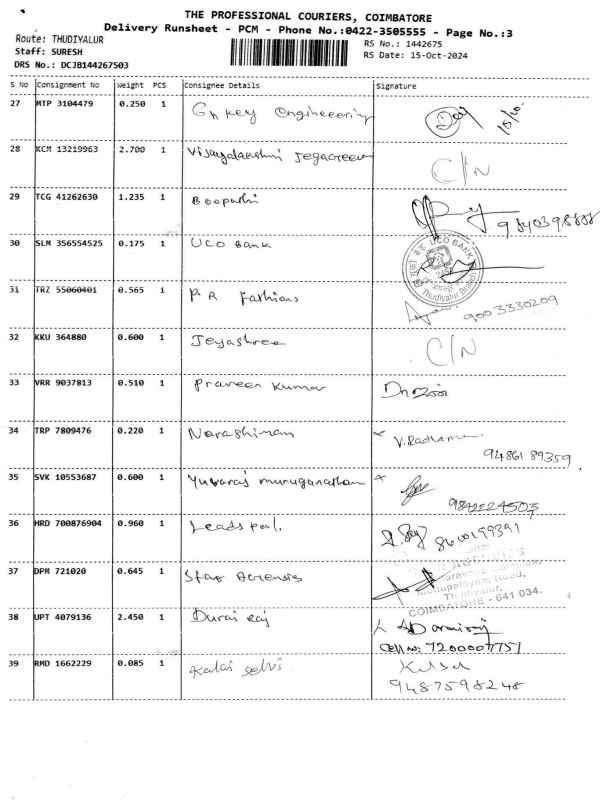 THE PROFESSIONAL COURIERS, COIMBATORE
Delivery Runsheet - PCM - Phone No.:0422-3505555 - Page No.:3
Route: THUDIYALUR
RS No.: 1442675
Staff: SURESH
RS Date: 15-Oct-2024
DRS No.: DCJB144267503
S No Consignment No Weight PCS Consignee Details Signature
27 MTP 3104479 0.250 1 key Engineeering
28 KCM 13219963 2.700 1 Vijayalakshmi C/N
29 TCG 41262630 1.235 1 Boopathi
30 SLM 356554525 0.175 1 UCO Bank
UCO BANK
Thudiyalur
31 TRZ 55060401 0.565 1 P R Fathions
9003330209
32 KKU 364880 0.600 1 Jeyashree C/N
33 VRR 9037813 0.510 1 Praveen Kumar
34 TRP 7809476 0.220 1 Narashiman
94861 89359
35 SVK 10553687 0.600 1 Yuvaraj muruganatham
9842224503
36 HRD 700876904 0.960 1 Leads pool.
37 DPM 721020 0.645 1 Star
Complex,
Mettupalayam Road,
Thudiyalur,
COIMBATORE - 641 034.
38 UPT 4079136 2.450 1 Durai raj
Cell no: 7200007751
39 RMD 1662229 0.085 1 Kalai selvi
9487598248